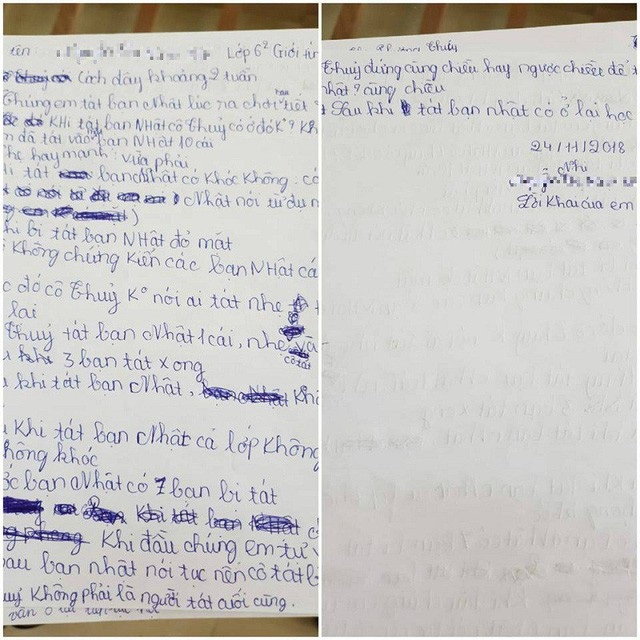 tên Lớp 6² Giới tín
Cách đây khoảng 2 tuần
Chúng em tát bạn Nhật lúc ra chơi tiết
KHi tát bạn NHật cô Thuỷ có ở đó K°?
đã tát vào bạn NHật 10 cái
hẹ hay mạnh: vừa phải
tát bạn Nhật có Khóc Không. Có
Nhật nói tự dự
hi bị tát bạn NHật đỏ mặt
Không chứng Kiến các bạn NHật
đó cô Thuỷ K° nói ai tát nhẹ
lại
Thuỷ tát bạn Nhật 1 cái, nhẹ và
cô tát
khi 3 bạn tát xong
khi tát bạn Nhật,
Khi tát bạn Nhật cả lớp Không
hông khóc
ớc bạn Nhật có 7 bạn bị tát
Khi tát
Khi đầu chúng em tự
sau bạn nhật nói tục nên cô tát
uỷ Không phải là người tát cuối cùng.
Thuỷ
Thuỷ đứng cùng chiều hay ngược chiều để
nhật? cùng chiều
Sau khi tát bạn nhật có ở lại học
24/11/2018
Nhi
Lời Khai của em